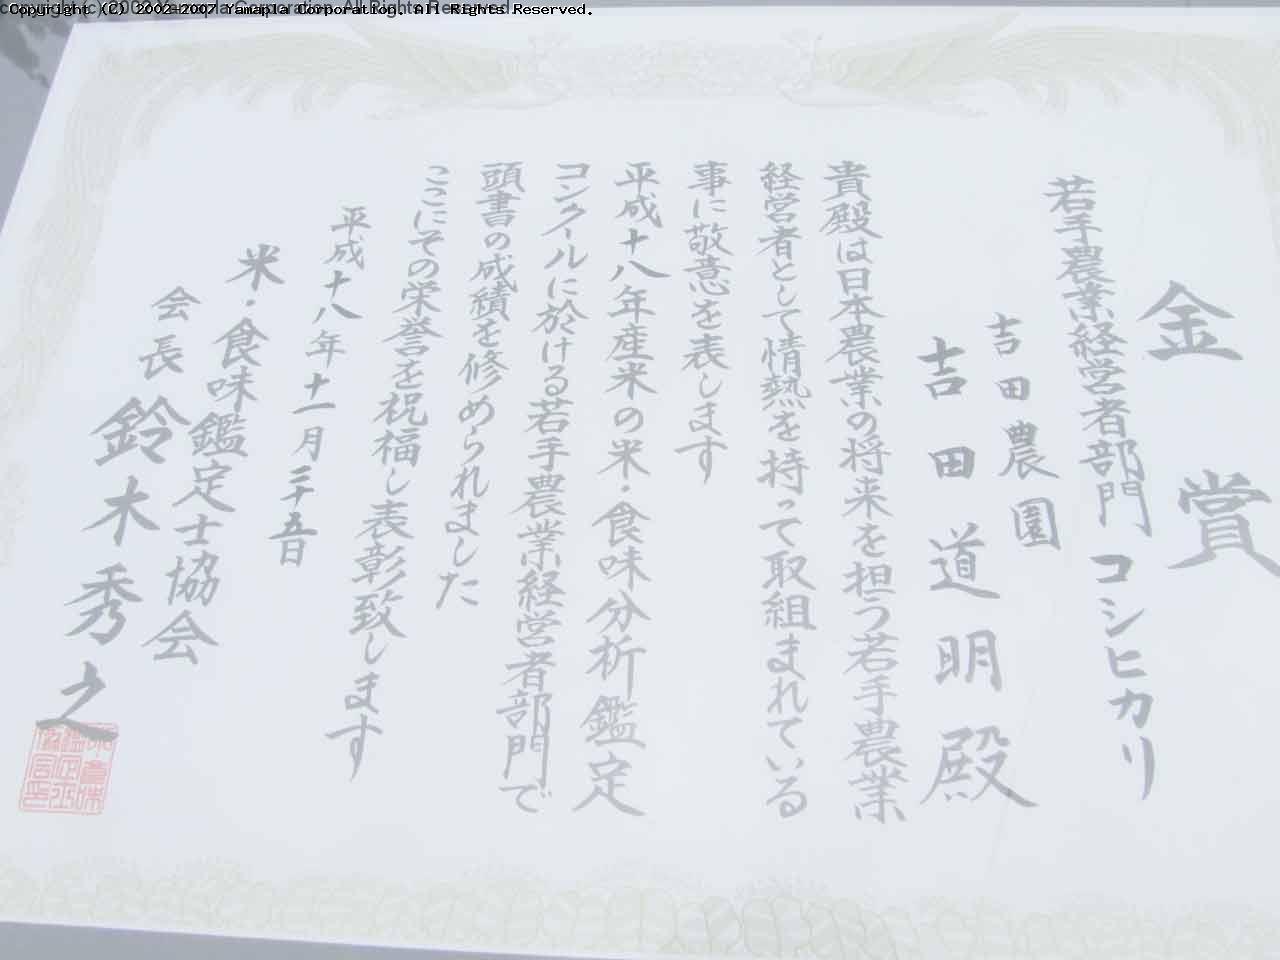 Copyright (C) 2002-2007 Yamapla Corporation. All Rights Reserved.
金賞
若手農業経営者部門 コシヒカリ
吉田農園
吉田道明殿
貴殿は日本農業の将来を担う若手農業
経営者として情熱を持って取組まれている
事に敬意を表します
平成十八年産米の米・食味分析鑑定
コンクールに於ける若手農業経営者部門で
頭書の成績を修められました
ここにその栄誉を祝福し表彰致します
平成十八年十一月二十五日
米・食味鑑定士協会
会長 鈴木秀之